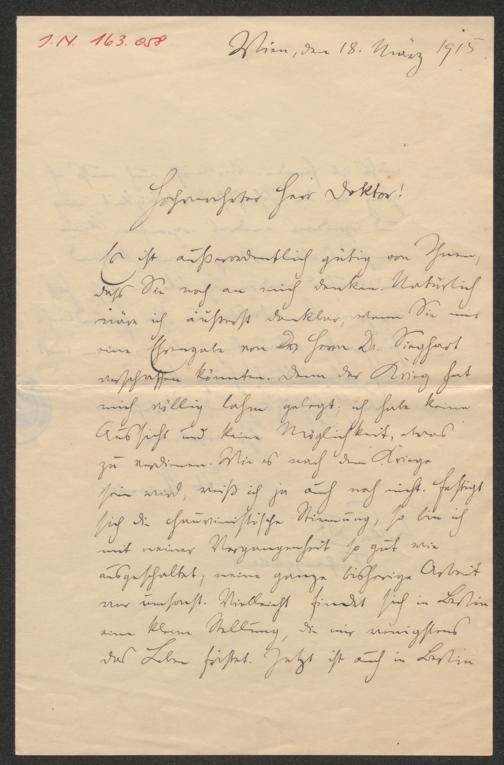 J.N. 163.058
Wien, den 18. März 1915
Hochverehrter Herr Doktor!
Es ist außerordentlich gütig von Ihnen,
daß Sie noch an mich denken. Natürlich
wäre ich äußerst dankbar, wenn Sie mir
eine Ehrengabe von Herrn Dr. Sieghart
verschaffen könnten. Denn der Krieg hat
mich völlig lahm gelegt; ich habe keine
Aussicht und keine Möglichkeit, etwas
zu verdienen. Wie es nach dem Kriege
sein wird, weiß ich ja auch noch nicht. Festigt
sich die chauvinistische Stimmung, so bin ich
mit meiner Vergangenheit so gut wie
ausgeschaltet; meine ganze bisherige Arbeit
war umsonst. Vielleicht findet sich in Berlin
eine kleine Stellung, die mir wenigstens
das Leben fristet. Jetzt ist auch in Berlin